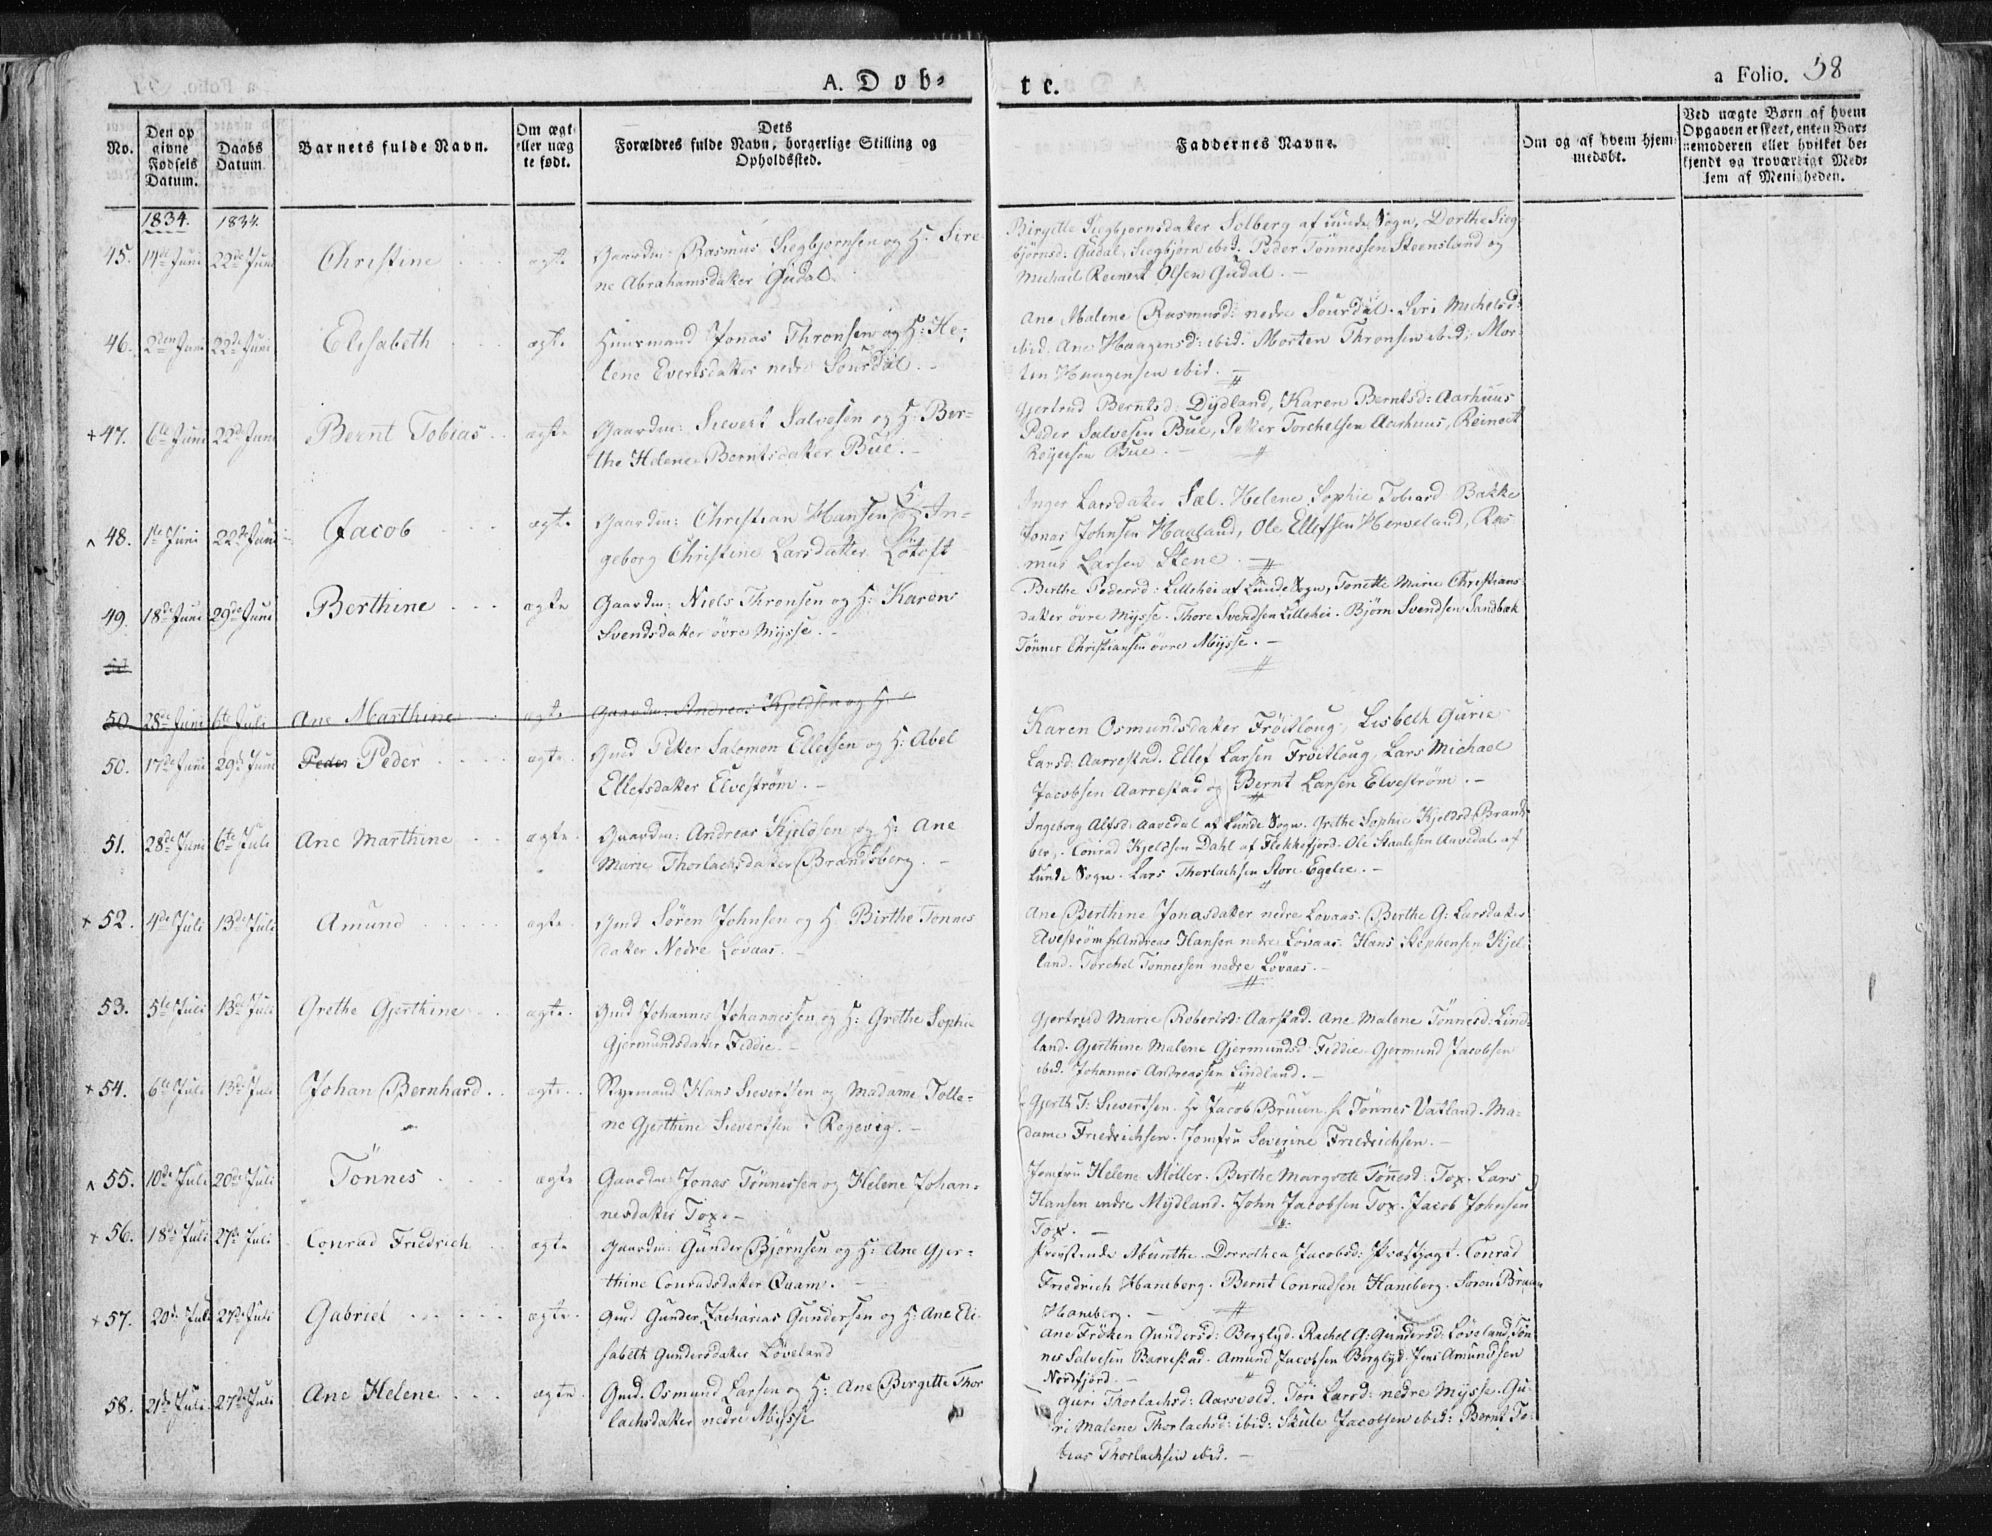 A. Døb-
te.
a Folio. 58
No.
Den op
givne
Fødsels
Datum.
Daabs
Datum.
Barnets fulde Navn.
Om ægt
eller uæg
te født.
Dets
Forældres fulde Navn, borgerlige Stilling og
Opholdssted.
Faddernes Navne.
Om og af hvem hjem-
medøbt.
Ved uægte Børn af hvem
Opgaven er skeet, enten Bar-
nemoderen eller hvilket be-
kjendt og troværdigt Med-
lem af Menigheden.
1834. 1834.
45. 14de Juni 22de Juni Christine ægte Gaardm: Rasmus Siegbjørnsen og H: Sire-
ne Abrahamsdatter Gudal.
Birgitte Siegbjørnsdatter Solberg af Lunde Sogn, Dorthe Sieg-
bjørnsd: Gudal, Siegbjørn ibid. Peder Tönnessen Steensland og
Michael Reinert Olsen Gudal. -
46. 2den Juni 22de Juni Elisabeth ægte Huusmand Jonas Thronsen og H: He-
lene Evertsdatter nedr Sourdal. -
Ane Malene Rasmusd: nedre Sourdal. Siri Michelsd:
ibid. Ane Haagensd: ibid. Morten Thronsen ibid, Mor-
ten Haagensen ibid. -
+47. 6te Juni 22de Juni Bernt Tobias ægte Gaardm: Sievert Salvesen og H: Ber-
the Helene Berntsdatter Bue. -
Gjertrud Berntsd: Dydland, Karen Berntsd: Aarhuus
Peder Salvesen Bue, Petter Torchelsen Aarhuus, Reinert
Reiersen Bue. -
48. 1te Juni 22de Juni Jacob ægte Gaardm: Christian Hansen og H In-
geborg Christine Larsdatter Lötoft
Inger Larsdatter Sæl. Helene Sophie Tobiasd Bakke
Jonas Johnsen Haaland, Ole Ellefsen Herveland, Ras
mus Larsen Stene. -
49. 18de Juni 29de Juni Berthine ægte Gaardm: Niels Thronsen og H: Karen
Svendsdatter övre Mysse. -
Berthe Pedersd: Lillehei af Lunde Sogn, Tonette Marie Christians
datter övre Mysse. Thore Svendsen Lillehei. Björn Svendsen Sandbæk
Tönnes Christiansen övre Mysse. -
50 28de Juni 6te Juli Ane Marthine ægte Gaardm: Andreas Kjeldsen og H:
50. 17de Juni 29de Juni Peder Peder ægte Gmd Peter Salomon Ellefsen og H: Abel
Ellefsdatter Elveström. -
Karen Osmundsdatter Fröitloug, Lisbeth Gurie
Larsd: Aarrestad. Ellef Larsen Fröitloug, Lars Michael
Jacobsen Aarrestad og Bernt Larsen Elveström. -
51. 28de Juni 6te Juli Ane Marthine ægte Gaardm: Andreas Kjeldsen og H: Ane
Marie Thorlachsdatter Brandsberg. -
Ingeborg Alfsd: Aavedal af Lunde Sogn. Grethe Sophie Kjeldsd Brands-
ber. Conrad Kjeldsen Dahl af Flekkefjord. Ole Staalesen Aavedal af
Lunde Sogn. Lars Thorlachsen Store Egelie. -
+ 52. 4de Juli 13de Juli Amund ægte Gmd Sören Johnsen og H. Birthe Tönnes
datter Nedre Lövaas. -
Ane Berthine Jonasdatter nedre Lovaas. Berthe G: Larsdatter
Elveström Andreas Hansen nedre Lövaas. Hans Stephensen Kjel-
land. Torchel Tönnessen nedre Lövaas. -
53. 5te Juli 13de Juli Grethe Gjerthine ægte Gmd Johannes Johannessen og H: Grethe Sophie
Gjermundsdatter Fiddie. -
Gjertrud Marie Robertsd: Aarstad. Ane Malene Tönnesd: Lind-
land. Gjerthine Malene Gjermundsd: Fiddie Gjermund Jacobsen
ibid. Johannes Andreassen Lindland. -
+ 54. 6te Juli 13de Juli Johan Bernhard ægte Styrmand Hans Sievertsen og Madame Tolle-
ne Gjerthine Sievertsen i Rægevig. -
Gjerth T: Sievertsen. Hr Jacob Bruun. Tönnes Vatland. Ma-
dame Friedrichsen. Jomfru Severine Friedrichsen. -
55. 10de Juli 20de Juli Tönnes ægte Gaardm Jonas Tönnessen og Helene Johan-
nesdatter Tox. -
Jomfru Helene Möller. Berthe Margrete Tönnesd: Tox. Lars
Hansen indre Mydland. John Jacobsen Tox. Jacob Johnsen
Tox. -
+ 56. 18de Juli 27de Juli Conrad Friedrich ægte Gaardm: Gunder Björnsen og H: Ane Gjer-
thine Conradsdatter Qvam. -
Provstinde Münthe. Dorothea Jacobsd: Præstjagt. Conrad
Friedrich Haneberg. Bernt Conradsen Haneberg. Sören Bruun
Haneberg. -
+ 57. 20de Juli 27de Juli Gabriel ægte Gmd Gunder Zacharias Gundersen og H: Ane Eli-
sabeth Gundersdatter Löveland
Ane Fröken Gundersd: Berglyd. Rachel G: Gundersd: Löveland, Tön-
nes Salvesen Barrestad. Amund Jacobsen Berglyd. Jens Amundsen
Nordfjord. -
58. 21de Juli 27de Juli Ane Helene ægte Gmd. Osmund Larsen og H: Ane Birgitte Thor
lachsdatter nedre Mysse
Guri Thorlachsd: Aarsvold. Töri Larsd: nedre Mysse. Gu-
ri Malene Thorlachsd: ibid: Skule Jacobsen ibid: Bernt To-
bias Thorlachsen ibid. -